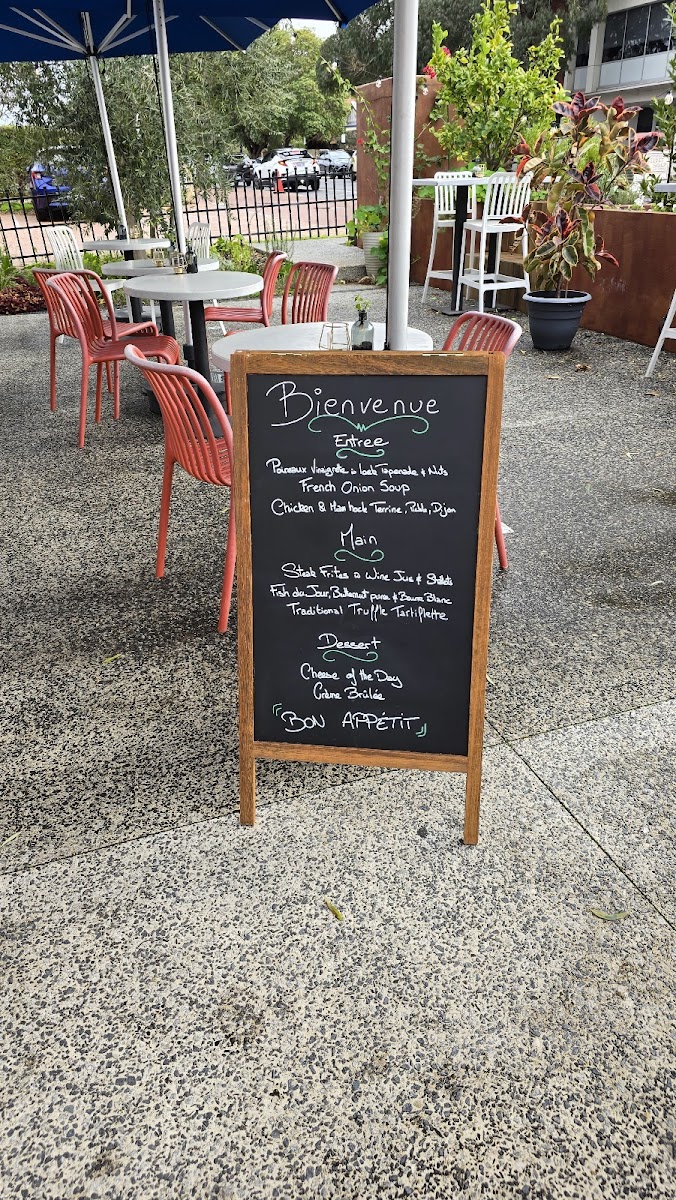 Bienvenue
Entree
Poireaux Vinaigrette is Leek Tapenade & Nuts
French Onion Soup
Chicken & Ham hock Terrine, Pickle, Dijon
Main
Steak Frites Wine Jus & Shallots
Fish du Jour, Butternut puree & Beurre Blanc
Traditional Truffle Tartiflette
Dessert
Cheese of the Day
Crème Brûlée
BON APPÉTIT